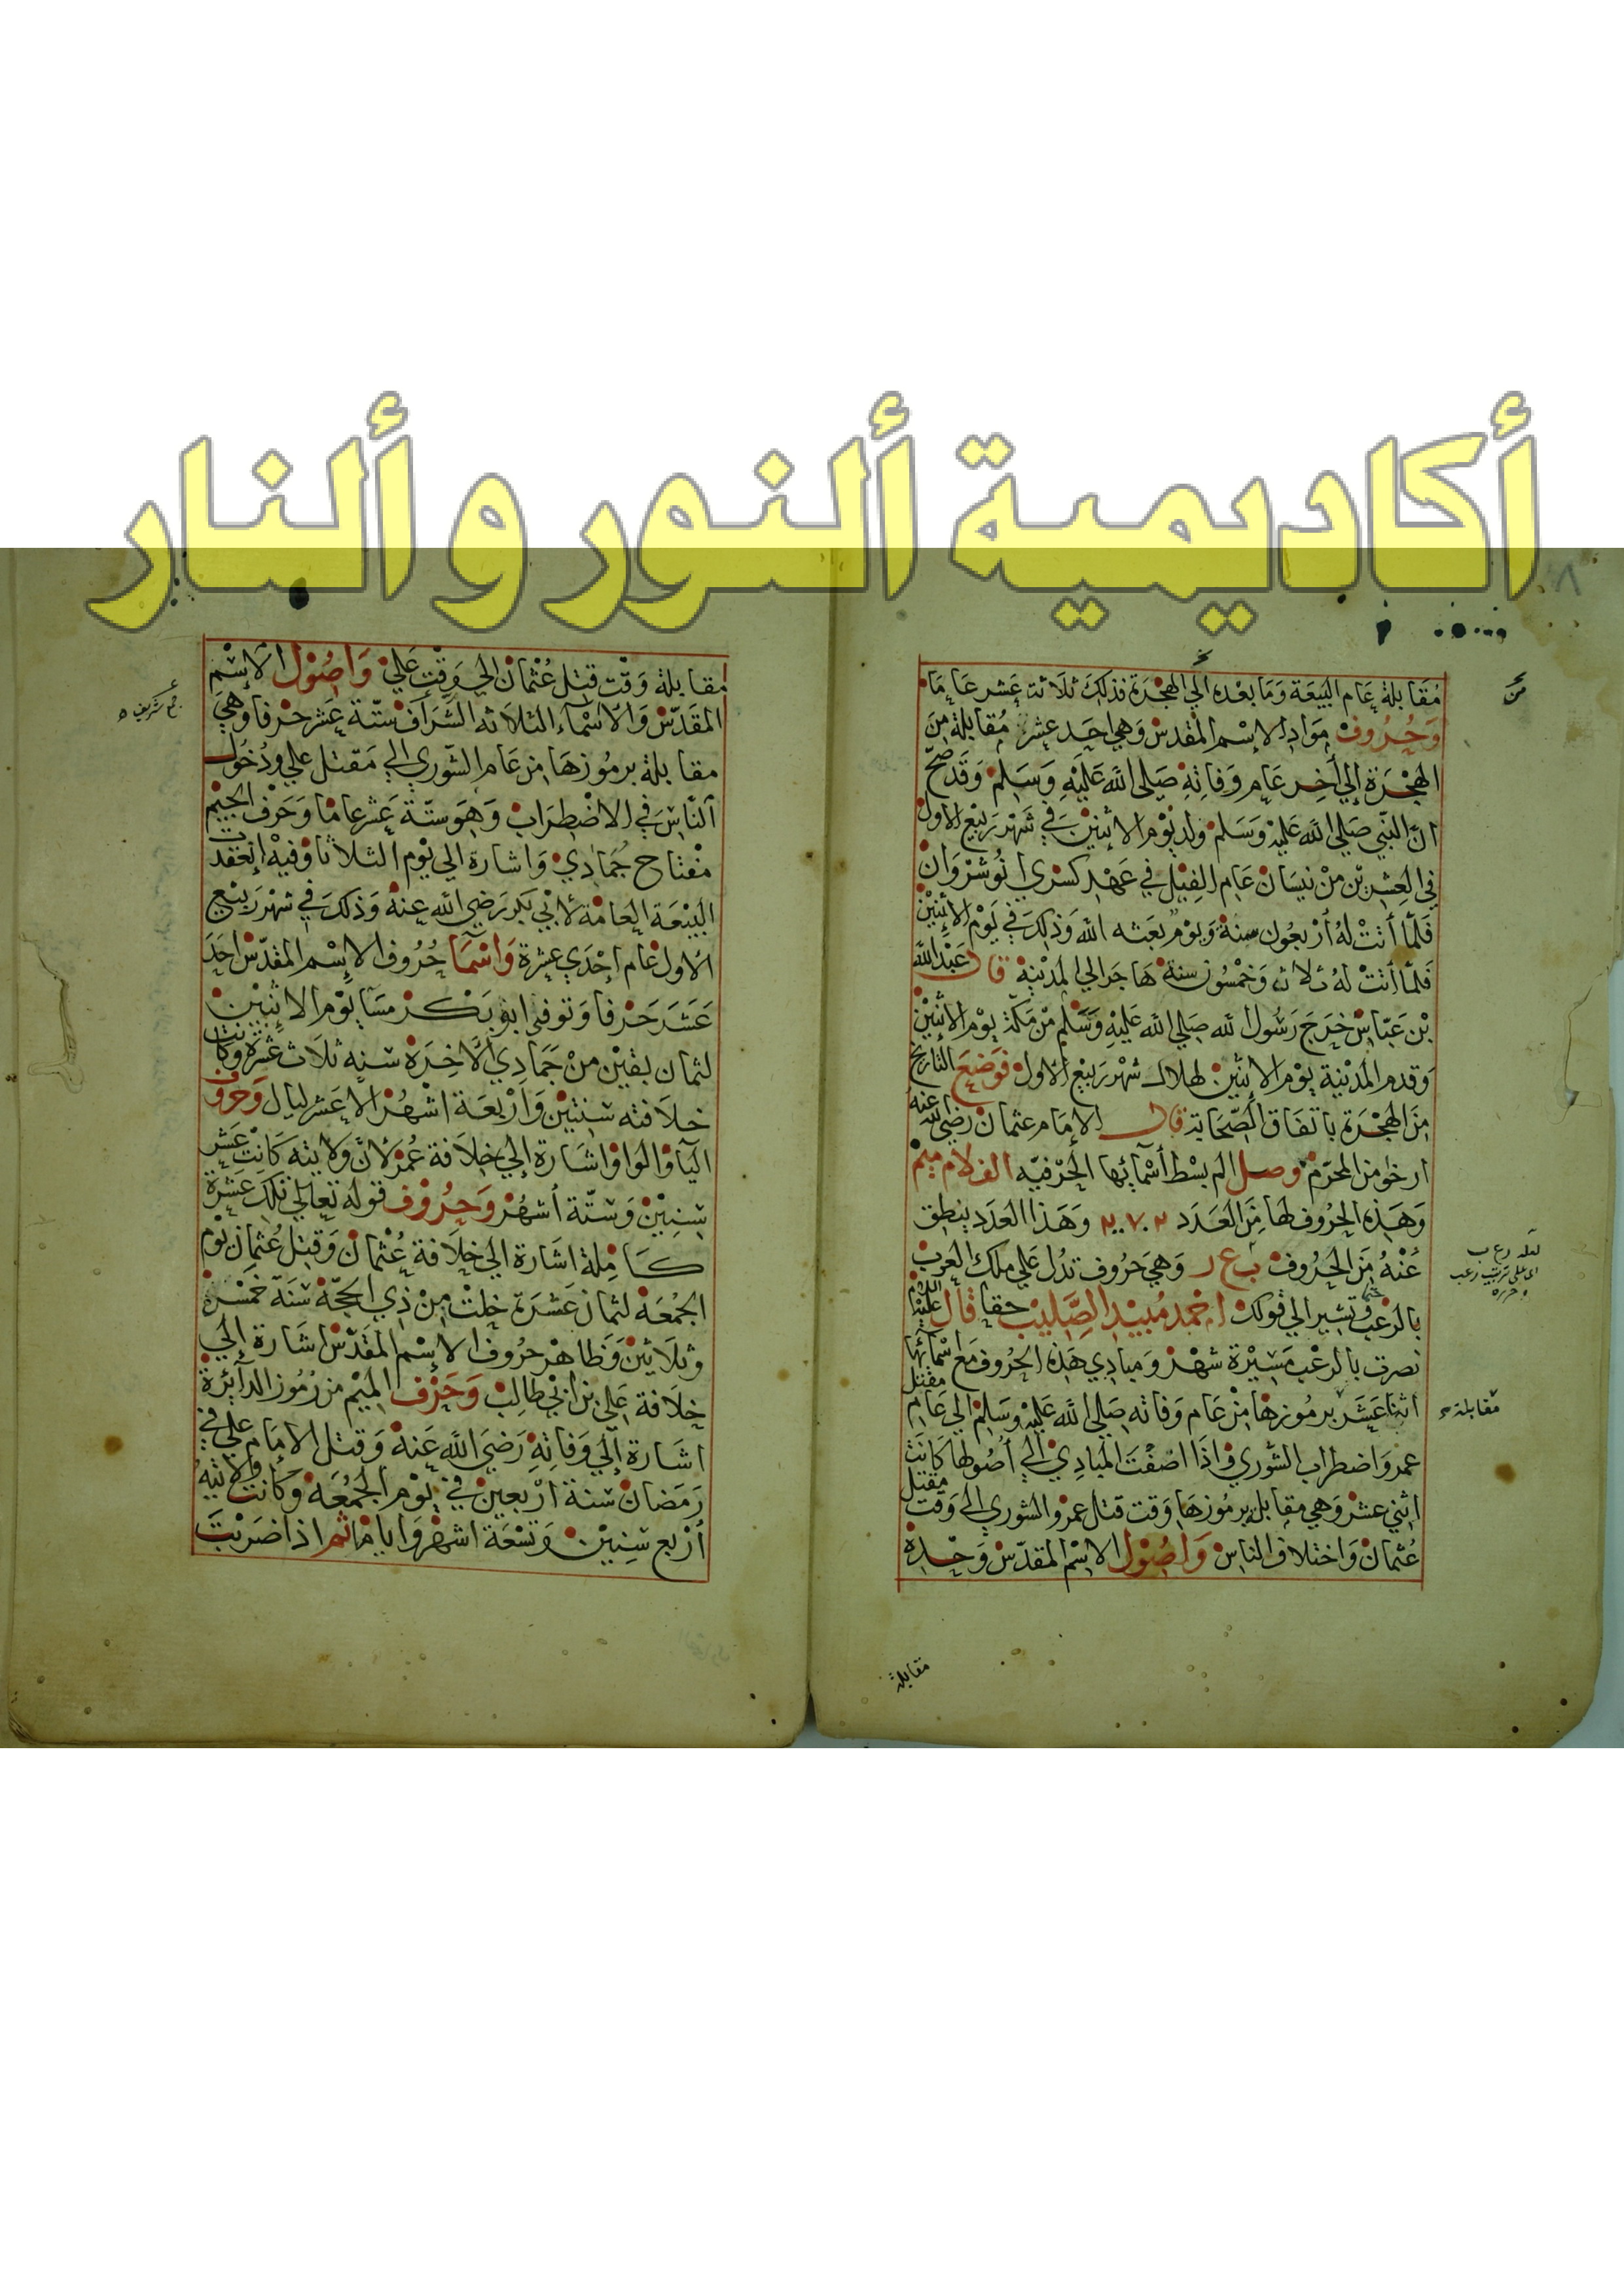 أكاديمية ألنور و ألنار
مقابلة عام البيعة وما بعده الي الهجرة فذلك ثلاثة عشر عاما
وحروف مواد الاسم المقدس وهي احد عشر مقابلة من
الهجرة إلي آخر عام وفاته صلي الله عليه وسلم وقد صح
ان النبي صلي الله عليه وسلم ولد يوم الاثنين في شهر ربيع الاول
في العشرين من نيسان عام الفيل في عهد كسري انوشروان
فلما أتت له أربعون سنة ويوم بعثه الله وذلك في يوم الاثنين
فلما أتت له ثلاثة وخمسون سنة هاجر الي المدينة قال عبد الله
بن عباس خرج رسول الله صلي الله عليه وسلم من مكة يوم الاثنين
وقدم المدينة يوم الاثنين لهلال شهر ربيع الاول فوضع التاريخ
من الهجرة باتفاق الصحابة قال الامام عثمان رضي الله عنه
ارخوا من المحرم وصل الم بسط أسمائها الحرفيه الف لام ميم
وهذه الحروف لها من العدد ٢٧٠٢ وهذا العدد ينطق
عنه من الحروف ب ع ر وهي حروف تدل علي ملك العرب
بالرعب وتشير الي قولك احمد مبيد الصليب حقا قال عليه
نصرت بالرعب مسيرة شهر ومبادي هذه الحروف مع اسمائها
اثنا عشر برموزها من عام وفاته صلي الله عليه وسلم الي عام مقتل
عمر واضطراب الشوري فاذا اضفت المبادي الي أصولها كانت
اثني عشر وهي مقابله برموزها وقت قتل عمر والشوري الي وقت مقتل
عثمان واختلاف الناس واصول الاسم المقدس وحده
مقابلة
مقابلة
مقابلة وقت قتل عثمان الي وقت علي واصول الاسم
المقدس والاسماء الثلاثه الشراف ستة عشر حرفا وهي
مقابلة برموزها من عام الشوري الي مقتل علي ودخول
الناس في الاضطراب وهو ستة عشر عاما وحرف الجيم
مفتاح جمادي واشارة الي يوم الثلاثا وفيه انعقدت
البيعة العامة لابي بكر رضي الله عنه وذلك في شهر ربيع
الاول عام احدي عشرة واسما حروف الاسم المقدس احد
عشر حرفا وتوفي ابو بكر مسا يوم الاثنين
لثمان بقين من جمادي الاخرة سنه ثلاث عشرة وكانت
خلافته سنتين واربعة اشهر الا عشر ليال وحروف
اليآ والواو اشارة إلي خلافة عمر لان ولايته كانت عشر
سنين وستة أشهر وحروف قوله تعالي تلك عشرة
كاملة اشارة الي خلافة عثمان وقتل عثمان يوم
الجمعة لثمان عشرة خلت من ذي الحجة سنة خمسة
وثلاثين وظاهر حروف الاسم المقدس اشارة إلي
خلافة علي بن ابي طالب وحرف الميم من رموز الدآئرة
اشارة إلي وفاته رضي الله عنه وقتل الامام علي في
رمضان سنة اربعين في يوم الجمعة وكانت ولايته
أربع سنين وتسعة اشهر واياما ثم اذا ضربت